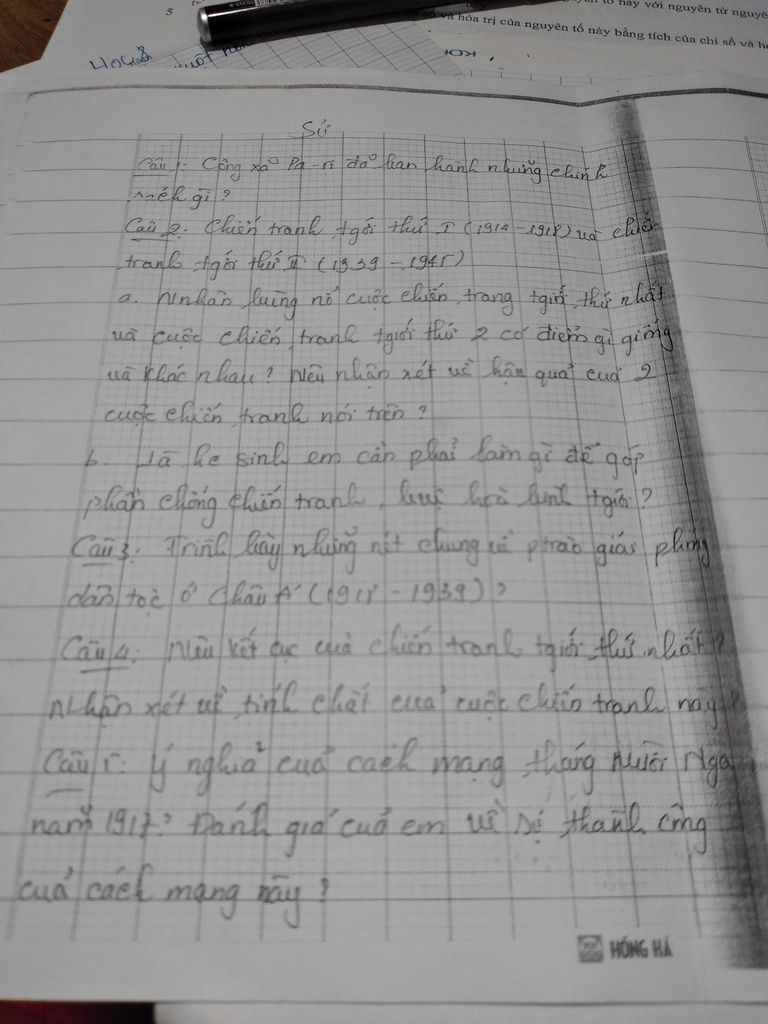 5
tố này với nguyên tử nguyê
số và hóa trị của nguyên tố này bằng tích của chỉ số và h
KOK
Sử
Câu 1: Công xã Pa-ri đã ban hành những chính
sách gì?
Câu 2: Chiến tranh tgới thứ I (1914-1918) và chiến
tranh tgới thứ II (1939-1945)
a. Nnhân bùng nổ cuộc chiến trang tgiới thứ nhất
và cuộc chiến tranh tgiới thứ 2 có điểm gì giống
và khác nhau? Nêu nhận xét về hậu quả của 2
cuộc chiến tranh nói trên?
b. Là hs sinh em cần phải làm gì để góp
phần chống chiến tranh, bvệ hoà bình tgiới?
Câu 3: Trình bày những nét chung về ptrào giải phóng
dân tộc ở Châu Á (1918-1939)?
Câu 4: Nêu kết cục của chiến tranh tgiới thứ nhất?
Nhận xét về tính chất của cuộc chiến tranh này?
Câu 5: Ý nghĩa của cách mạng tháng Mười Nga
năm 1917? Đánh giá của em về sự thành công
của cách mạng này?
HỒNG HÀ